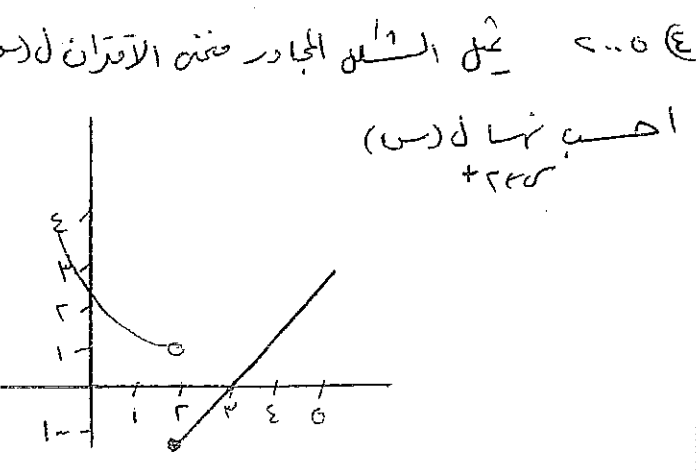 ٤ ٢٠٠٥ يمثل الشكل المجاور منحنى الاقتران ل(س
احسب نهــا ل(س)
س←٢+
٤
٣
٢
١
١ ٢ ٣ ٤ ٥
١-